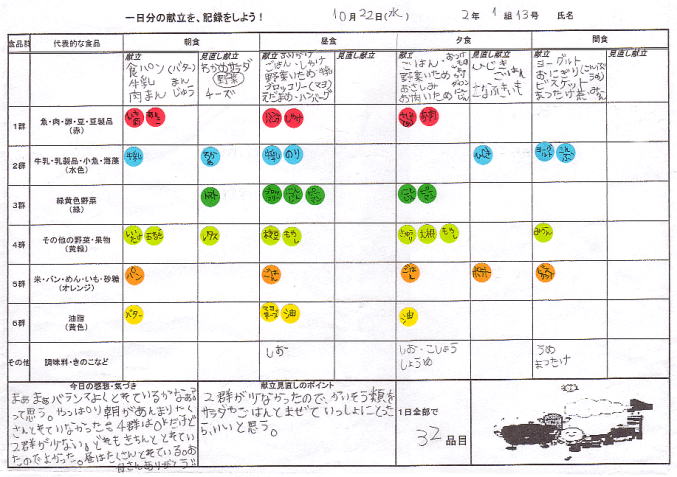 一日分の献立を、記録をしよう！ 10月22日(水) 2年 1組 13号 氏名
食品群 代表的な食品 朝食 昼食 夕食 間食
献立 見直し献立 献立 見直し献立 献立 見直し献立 献立
食パン(バター)
牛乳 まん
肉まん じゅう
わかめサラダ
野菜
チーズ
ごはん・しゃけ
野菜いため
ブロッコリー(マヨ)
えだまめ・ハンバーグ
ごはん
野菜いため
おさしみ
お肉いため
ひじき
ごはん
こなふきいも
ヨーグルト
おにぎり
ビスケット
まつたけ
1群 魚・肉・卵・豆・豆製品
(赤)
2群 牛乳・乳製品・小魚・海藻
(水色)
牛乳 わかめ 牛乳 のり ひじき ヨーグルト こんぶ
3群 緑黄色野菜
(緑)
トマト ブロッコリー にんじん ピーマン にんじん ピーマン
4群 その他の野菜・果物
(黄緑)
レタス 枝豆 もやし きゅうり 大根 もやし みかん
5群 米・パン・めん・いも・砂糖
(オレンジ)
パン ごはん ごはん ポテト
6群 油脂
(黄色)
バター マヨネーズ 油 油
その他 調味料・きのこなど
しお
しお・こしょう
しょうゆ
うめ
まつたけ
今日の感想・気づき
まぁまぁバランスよくとれているかなぁ
って思う。やっぱり朝があんまりたく
さんとれていなかった。4群はOKだけど
2群が少ない。どれもきちんととれてい
たのでよかった。昼はたくさんとれている。お
母さんありがとう!!
献立見直しのポイント
2群が少なかったので、かいそう類を
サラダやごはんとまぜていっしょにとった
ら、いいと思う。
1日全部で
32品目